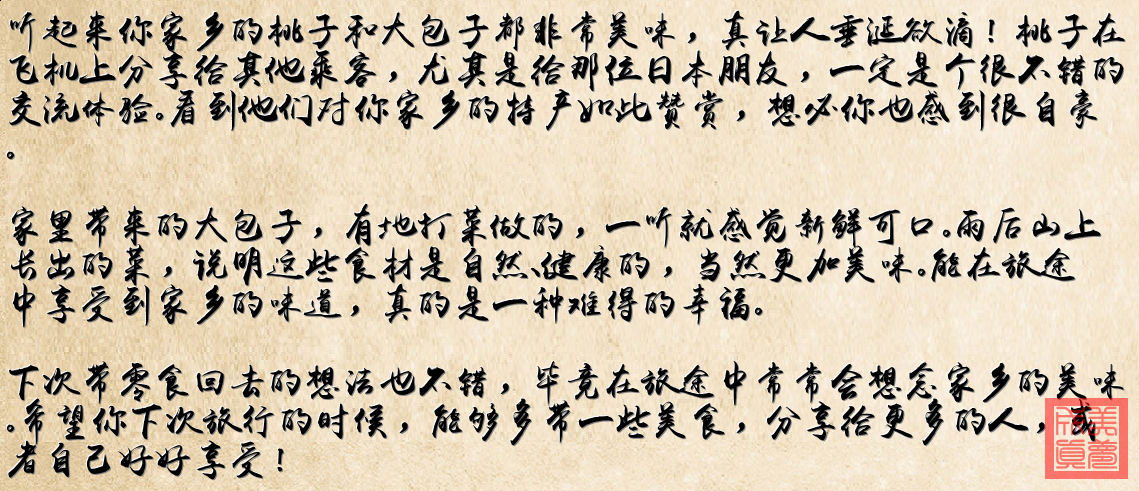 听起来你家乡的桃子和大包子都非常美味，真让人垂涎欲滴！桃子在
飞机上分享给其他乘客，尤其是给那位日本朋友，一定是个很不错的
交流体验。看到他们对你家乡的特产如此赞赏，想必你也感到很自豪
。
家里带来的大包子，有地打菜做的，一听就感觉新鲜可口。雨后山上
长出的菜，说明这些食材是自然、健康的，当然更加美味。能在旅途
中享受到家乡的味道，真的是一种难得的幸福。
下次带零食回去的想法也不错，毕竟在旅途中常常会想念家乡的美味
。希望你下次旅行的时候，能够多带一些美食，分享给更多的人，或
者自己好好享受！
美梦
成真